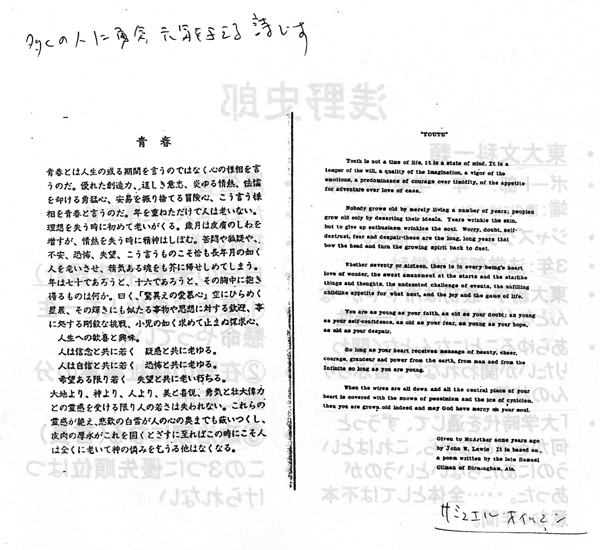 多くの人に勇気、元気を与える詩です
青春
青春とは人生の或る期間を言うのではなく心の様相を言
うのだ。優れた創造力、逞しき意志、炎ゆる情熱、怯懦
を却ける勇猛心、安易を振り捨てる冒険心、こう言う様
相を青春と言うのだ。年を重ねただけで人は老いない。
理想を失う時に初めて老いがくる。歳月は皮膚のしわを
増すが、情熱を失う時に精神はしぼむ。苦悶や狐疑や、
不安、恐怖、失望、こう言うものこそ恰も長年月の如く
人を老いさせ、精気ある魂をも芥に帰せしめてしまう。
年は七十であろうと、十六であろうと、その胸中に抱き
得るものは何か。曰く、「驚異えの愛慕心」空にひらめく
星辰、その輝きにも似たる事物や思想に対する歓迎、事
に処する剛毅な挑戦、小児の如く求めて止まぬ探求心、
人生への歓喜と興味。
人は信念と共に若く 疑惑と共に老ゆる。
人は自信と共に若く 恐怖と共に老ゆる。
希望ある限り若く 失望と共に老い朽ちる。
大地より、神より、人より、美と喜悦、勇気と壮大偉力
との霊感を受ける限り人の若さは失われない。これらの
霊感が絶え、悲歎の白雪が人の心の奥までも蔽いつくし、
皮肉の厚氷がこれを固くとざすに至ればこの時にこそ人
は全くに老いて神の憐みを乞うる他はなくなる。
"YOUTH"
Youth is not a time of life, it is a state of mind. It is a
temper of the will, a quality of the imagination, a vigor of the
emotions, a predominance of courage over timidity, of the appetite
for adventure over love of ease.
Nobody grows old by merely living a number of years; peoples
grow old only by deserting their ideals. Years wrinkle the skin,
but to give up enthusiasm wrinkles the soul. Worry, doubt, self-
destrust, fear and despair-these are the long, long years that
bow the head and turn the growing spirit back to dust.
Whether seventy or sixteen, there is in every-being's heart
love of wonder, the sweet amazement at the starts and the starlike
things and thoughts, the undaunted challenge of events, the unfilling
childlike appetite for what next, and the joy and the game of life.
You are as young as your faith, as old as your doubt; as young
as your self-confidence, as old as your fear, as young as your hope,
as old as your despair.
So long as your heart receives message of beauty, cheer,
courage, grandeur and power from the earth, from man and from the
Infinite so long as you are young.
When the wires are all down and all the central place of your
heart is covered with the snows of pessimism and the ice of cynicism,
then you are grown old indeed and may God have mercy on your soul.
Given to McArther some years ago
by John W. Lewis It is based on
a poem written by the late Samuel
Ullman of Birmingham, Ala.